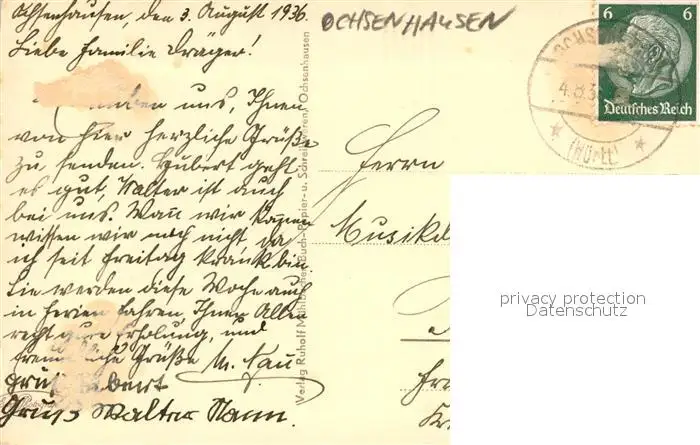 Ochsenhausen, den 3. August 1936.
Liebe Familie Dräger!
uns, Ihnen
von hier herzliche Grüße
zu senden. Hubert geht
es gut, Walter ist auch
bei uns. Wann wir kommen
wissen wir noch nicht, da
ich seit Freitag krank bin.
Sie werden diese Woche auch
in Ferien fahren. Ihnen Allen
recht gute Erholung, und
freundliche Grüße M.
Gruß Hubert
Gruß Walter Mann.
OCHSENHAUSEN
Verlag Rudolf Mühlbacher, Buch-, Papier- u. Schreibwaren, Ochsenhausen
6 6
Deutsches Reich
OCHS
4.8.3
(WÜRTT.)
Herrn
Musikd
privacy protection
Datenschutz